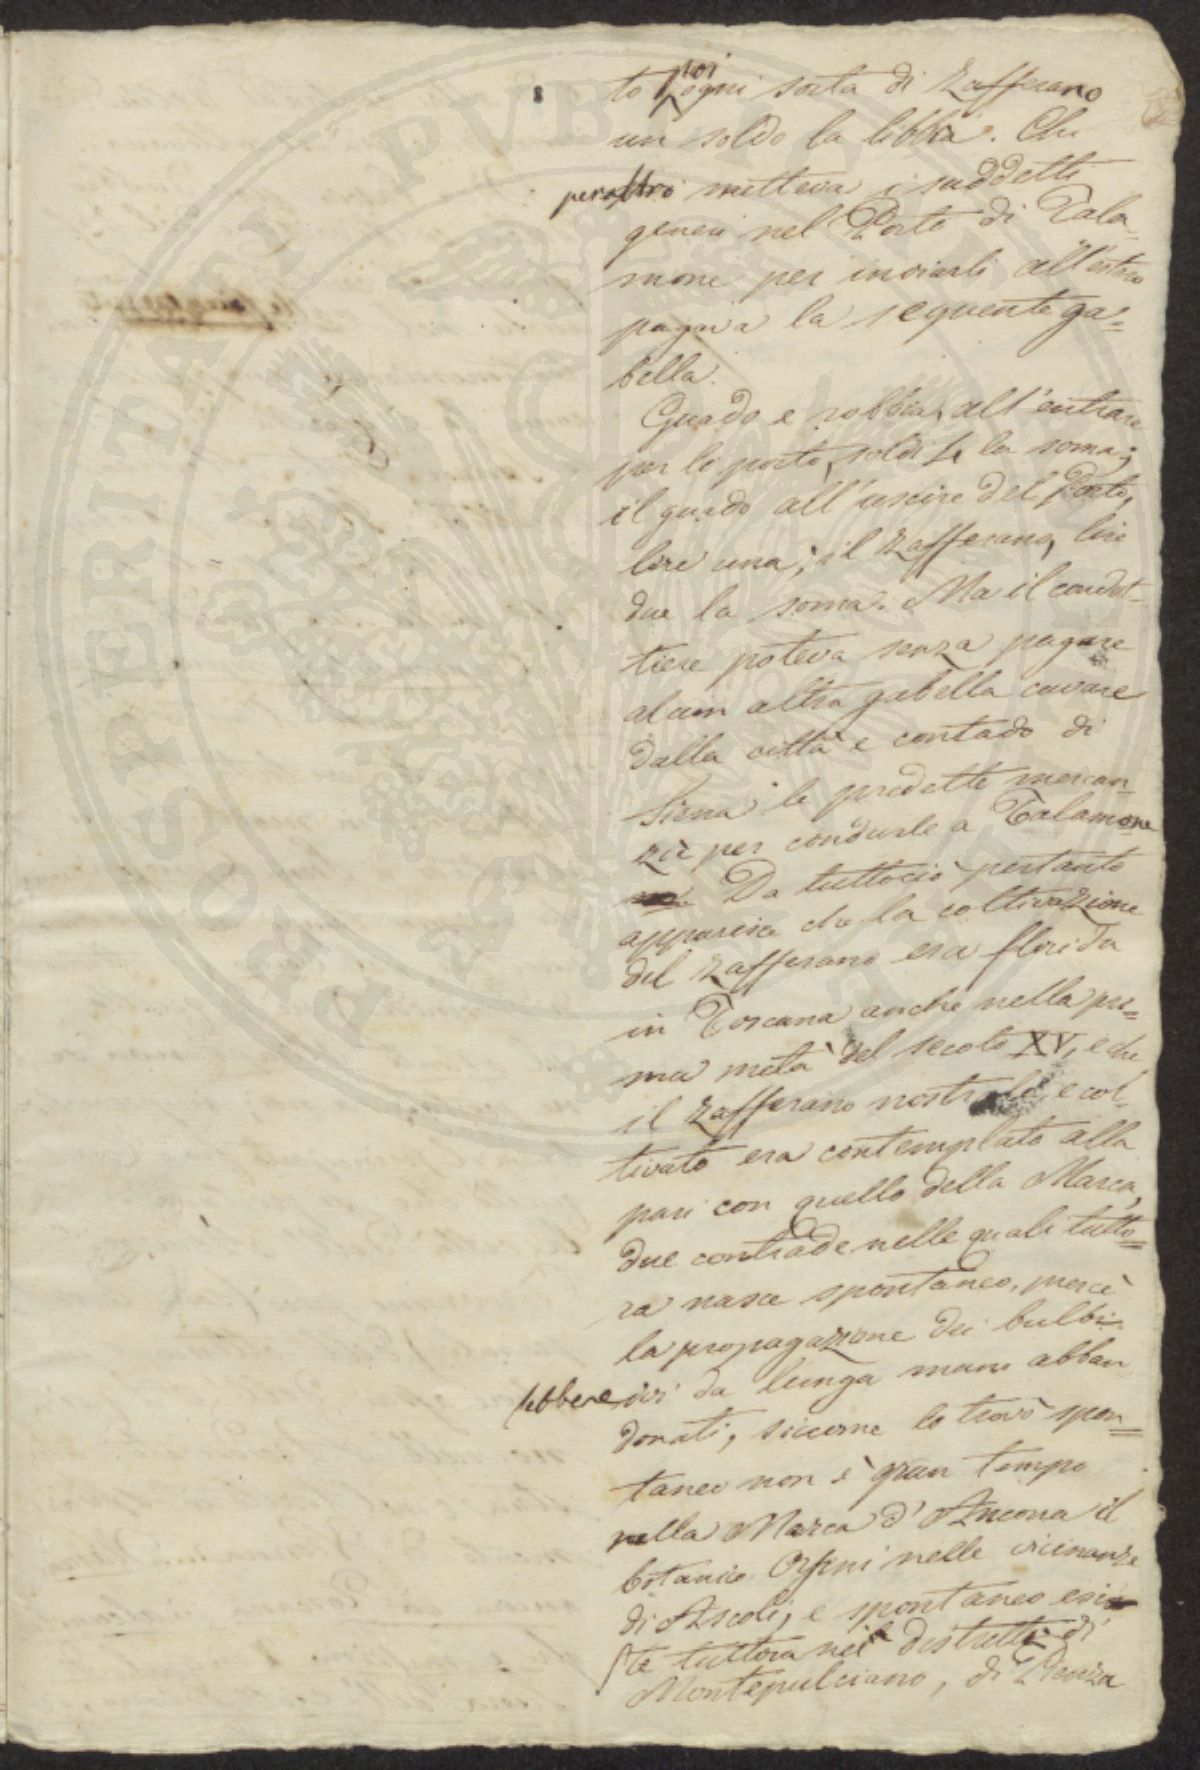 to poi ogni sorta di Zafferano
un soldo la libbra. Chi
peraltro metteva i suddetti
generi nel Porto di Tala-
mone per inviarli all'estero
pagava la seguente ga=
bella.
Guado e robbia, all'entrare
per lo porto, soldi la soma;
il guado all'uscire del Porto,
lire una; il Zafferano, lire
due la soma. Ma il condut-
tiere poteva senza pagare
alcun altra gabella cavare
dalla città e contado di
Siena le predette mercan-
zie per condurle a Talamone
Da tuttociò pertanto
apparisce che la coltivazione
del Zafferano era florida
in Toscana anche nella pri=
ma metà del secolo XV, e che
il Zafferano nostrale e col-
tivato era contemplato alla
pari con quello della Marca,
due contrade nelle quali tutto=
ra nasce spontaneo, mercè
la propagazione dei bulbi
sebbene ivi da lunga mano abban
donati, siccome lo trovò spon=
taneo non è gran tempo
nella Marca d'Ancona il
botanico Orsini nelle vicinanze
di Ascoli, e spontaneo esi
ste tuttora nei distretti di
Montepulciano, di Pienza
PROSPERITATI PVBLICAE